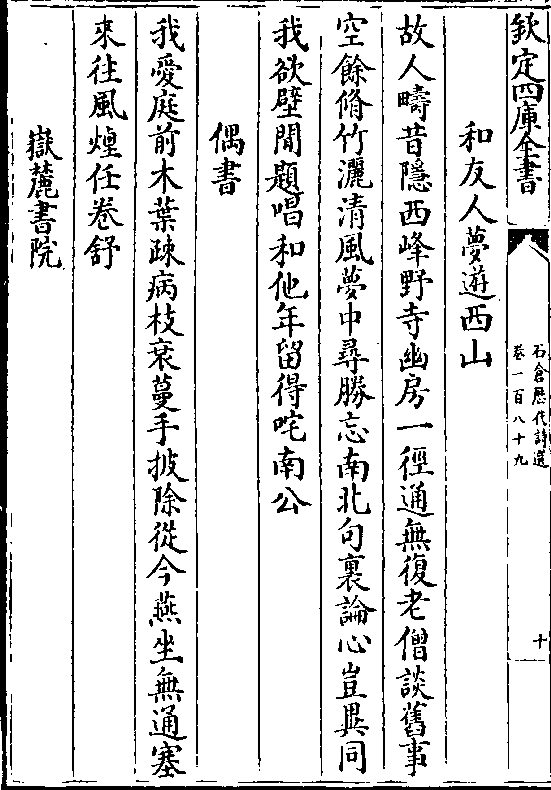 欽定四庫全書
石倉歴代詩選
卷一百八十九
十
和友人夢遊西山
故人疇昔隱西峰野寺幽房一徑通無復老僧談舊事
空餘脩竹灑清風夢中尋勝忘南北句裏論心豈異同
我欲壁間題唱和他年留得咤南公
偶書
我愛庭前木葉疎病枝衰蔓手披除從今燕坐無通塞
來往風煙任卷舒
嶽麓書院